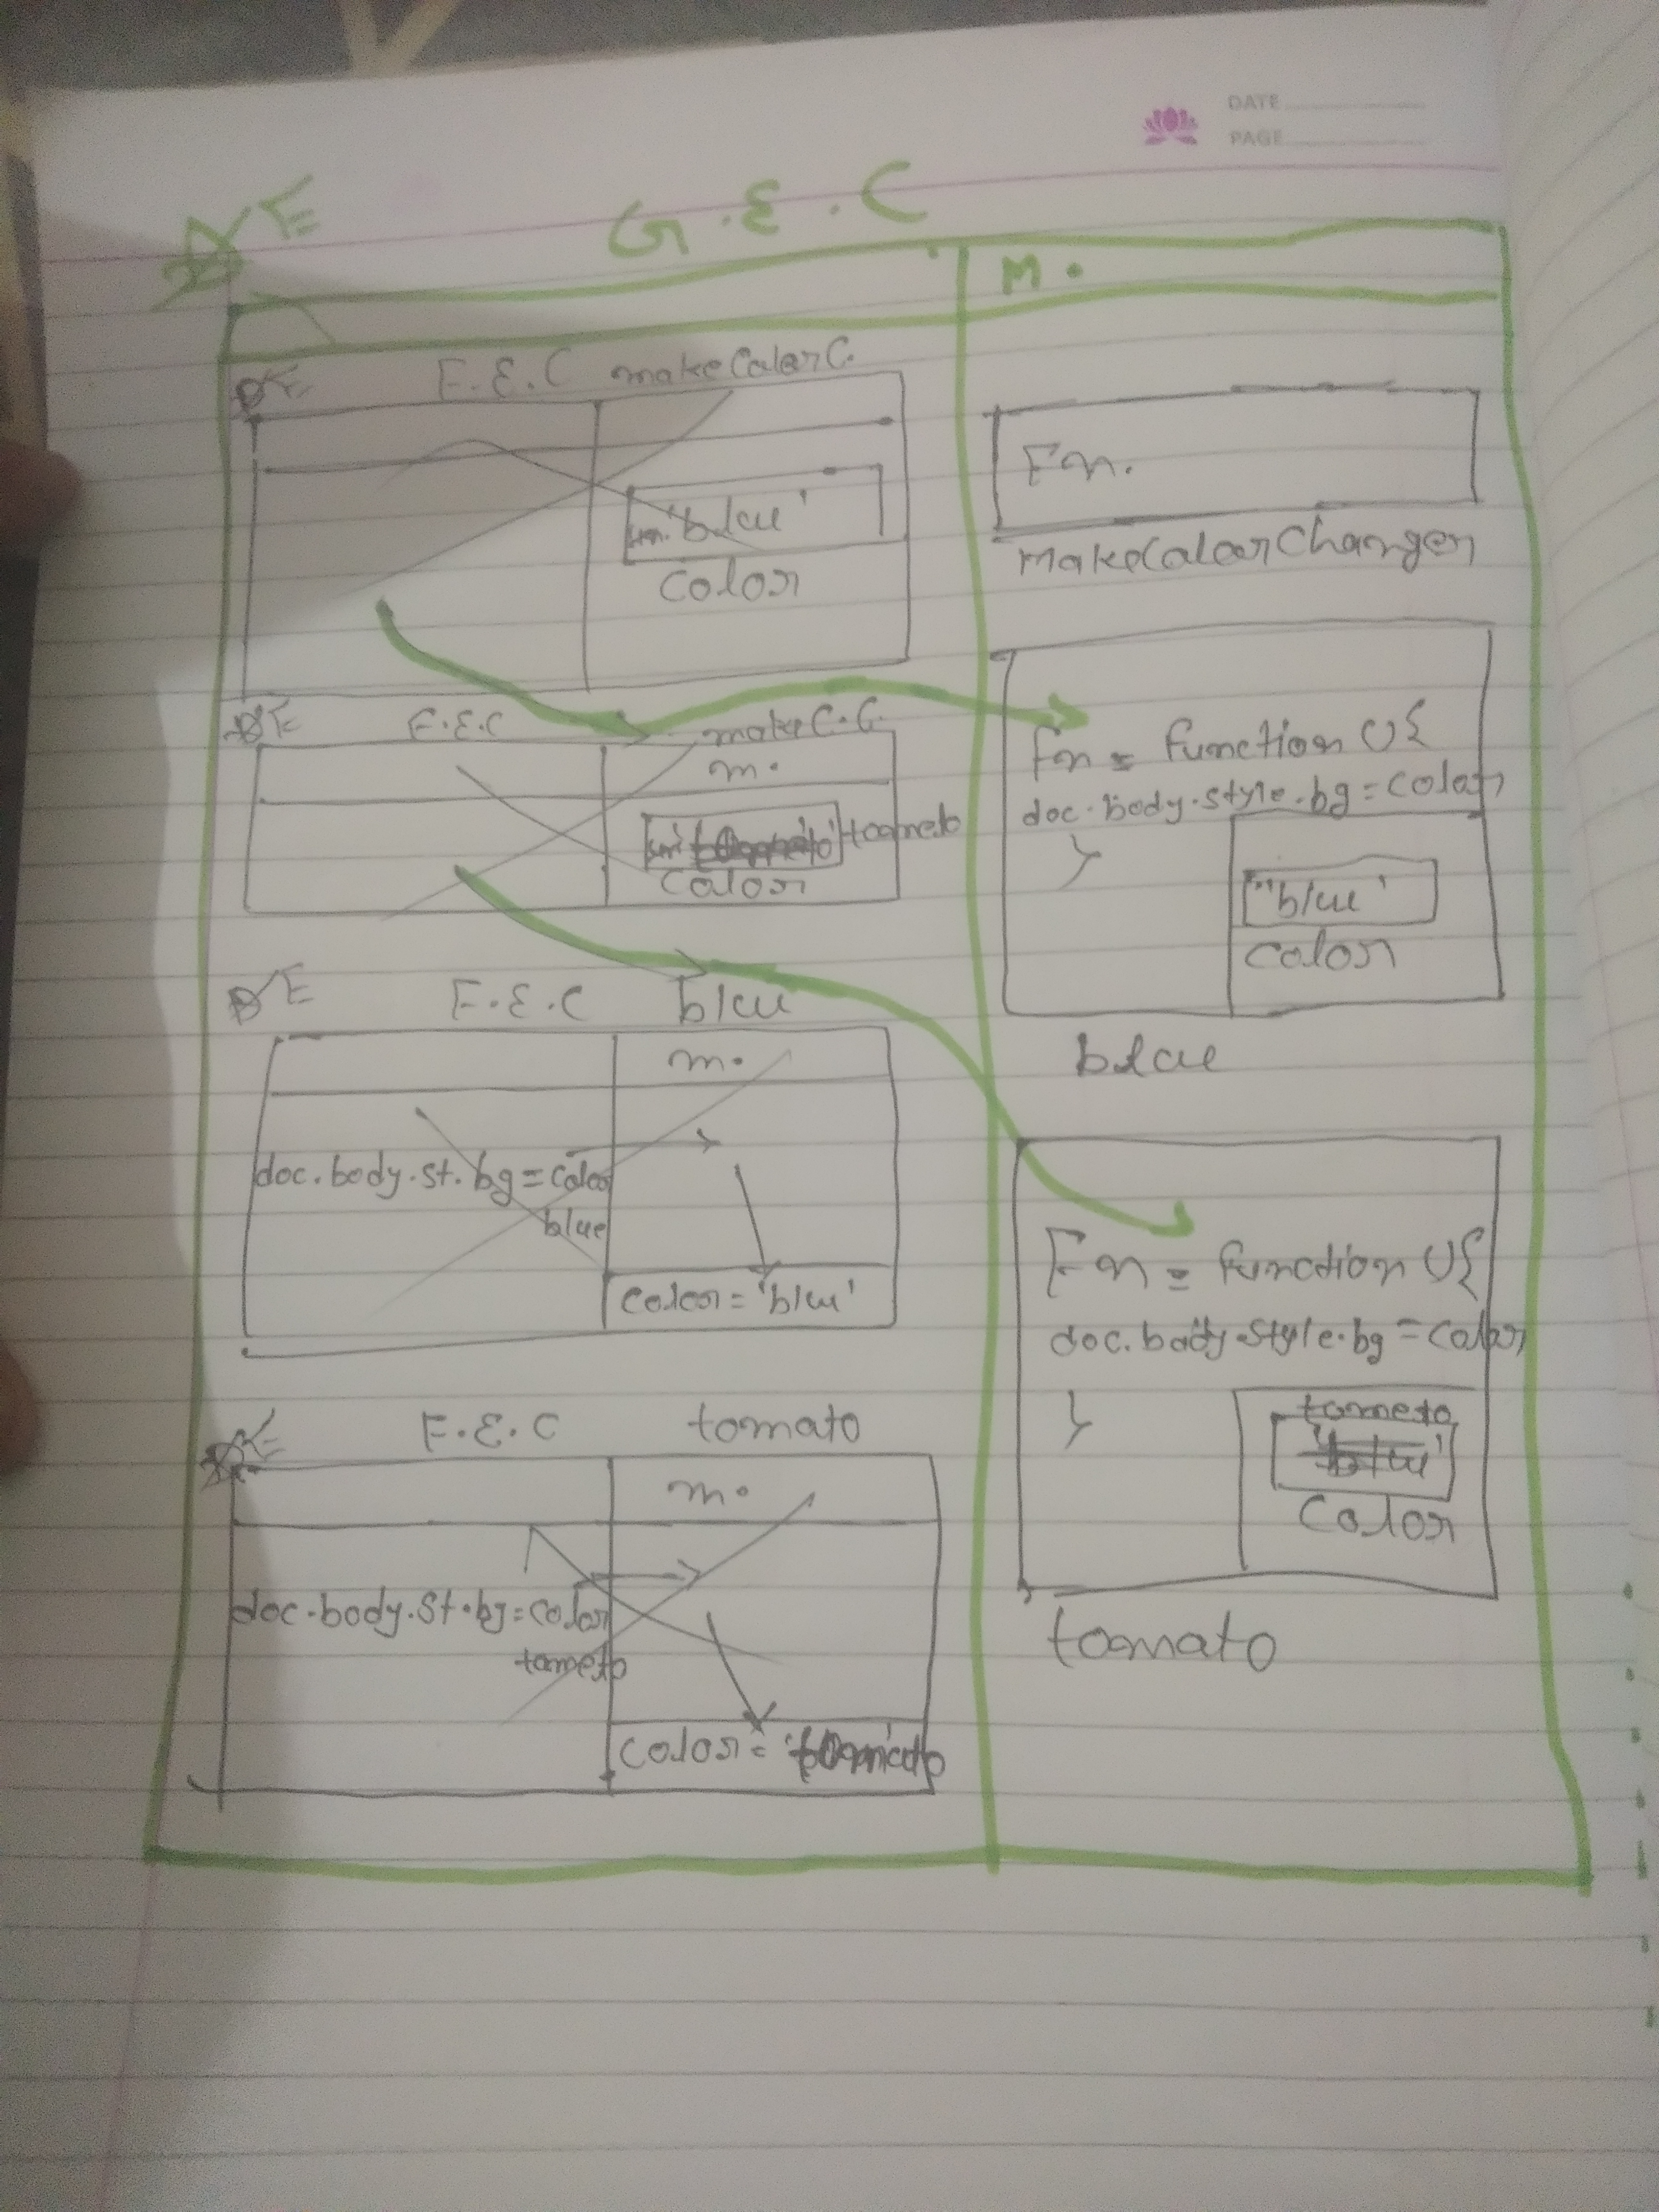 DATE
PAGE
G.E.C
E
M.
F.E.C makeColorC.
E
Fn.
'blue'
color
makeColorChanger
F.E.C makeC.C.
E
m.
tomato
color
Fn = function (){
doc.body.style.bg = color
}
"blue'
color
blue
E F.E.C blue
m.
doc.body.st.bg = color
blue
color = 'blue'
Fn = function (){
doc.body.style.bg = color
}
tomato
'blue'
color
tomato
E F.E.C tomato
m.
doc.body.st.bg = color
tomato
color = 'tomato